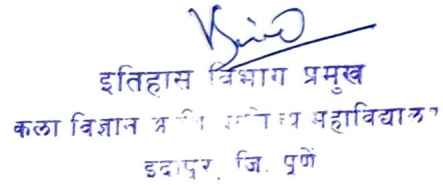 इतिहास विभाग प्रमुख
कला विज्ञान महाविद्यालय
इंदापूर, जि. पुणे